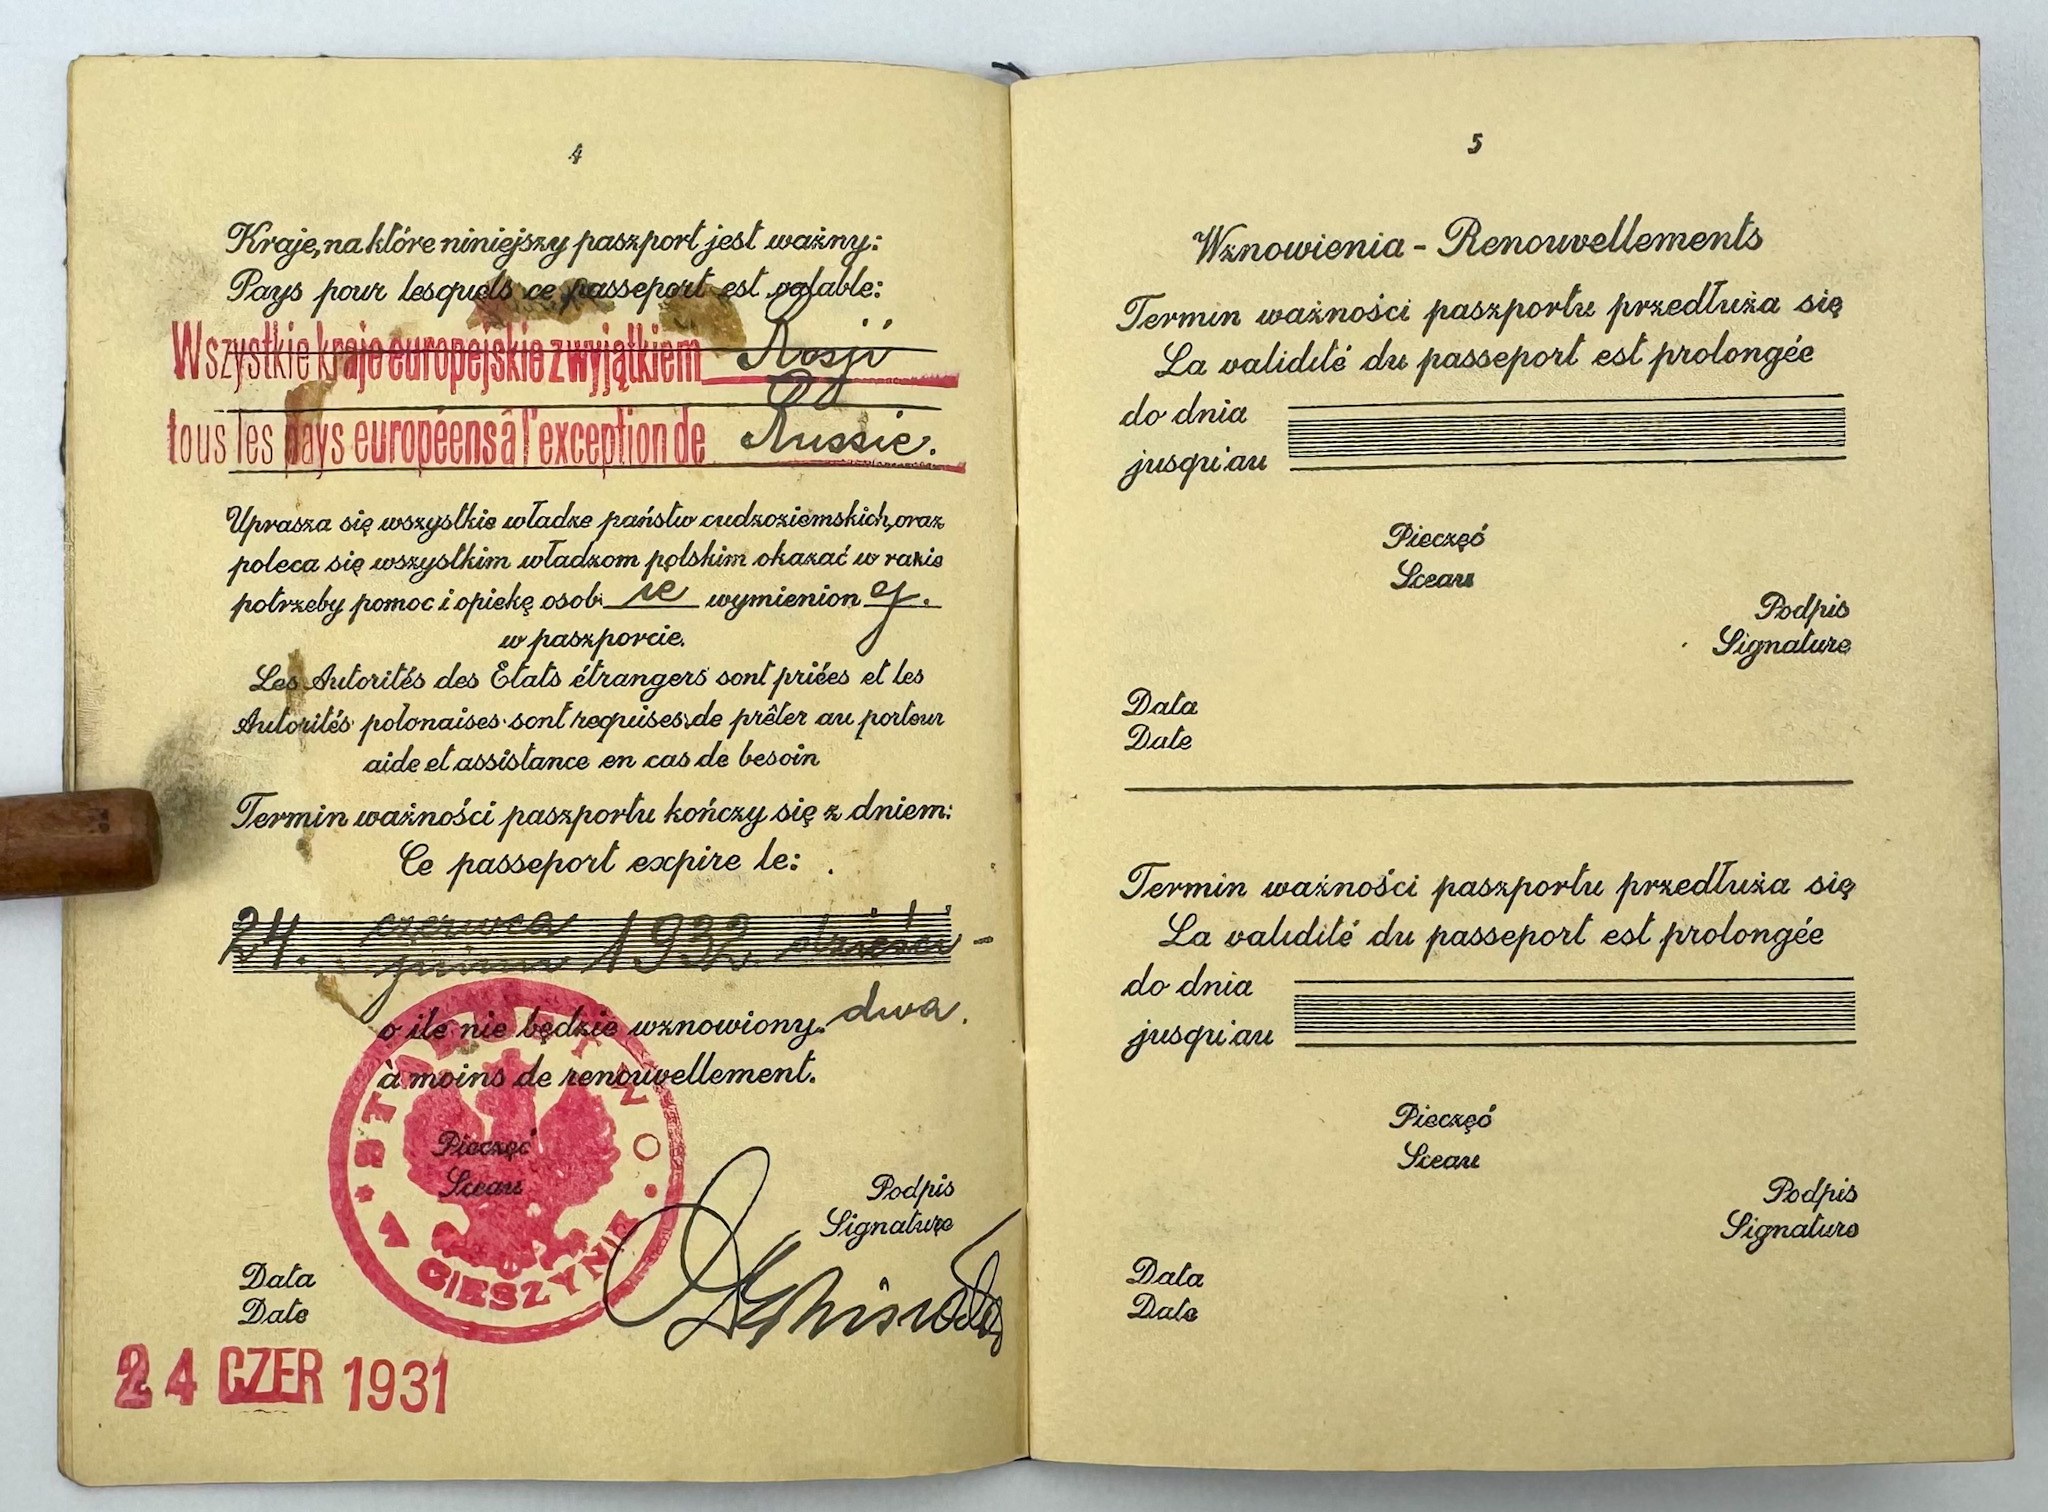 4
Kraje, na które niniejszy paszport jest ważny:
Pays pour lesquels ce passeport est valable:
Wszystkie kraje europejskie z wyjątkiem Rosji
tous les pays européens â l'exception de Russie.
Uprasza się wszystkie władze państw cudzoziemskich, oraz
poleca się wszystkim władzom polskim okazać w razie
potrzeby pomoc i opiekę osob ie wymienion ej.
w paszporcie.
Les Autorités des Etats étrangers sont priées et les
Autorités polonaises sont requises de prêter au porteur
aide et assistance en cas de besoin
Termin ważności paszportu kończy się z dniem:
Ce passeport expire le:
24. czerwca 1932
juin
dwa.
o ile nie będzie wznowiony.
à moins de renouvellement.
Pieczęć
Sceau
W CIESZYNIE
Podpis
Signature
Data
Date
24 CZER 1931
5
Wznowienia - Renouvellements
Termin ważności paszportu przedłuża się
La validité du passeport est prolongée
do dnia
jusqu'au
Pieczęć
Sceau
Podpis
Signature
Data
Date
Termin ważności paszportu przedłuża się
La validité du passeport est prolongée
do dnia
jusqu'au
Pieczęć
Sceau
Podpis
Signature
Data
Date